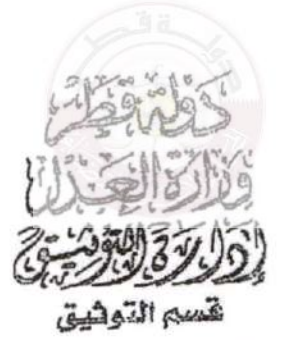 دولة قطر
وزارة العدل
إدارة التوثيق
قسم التوثيق